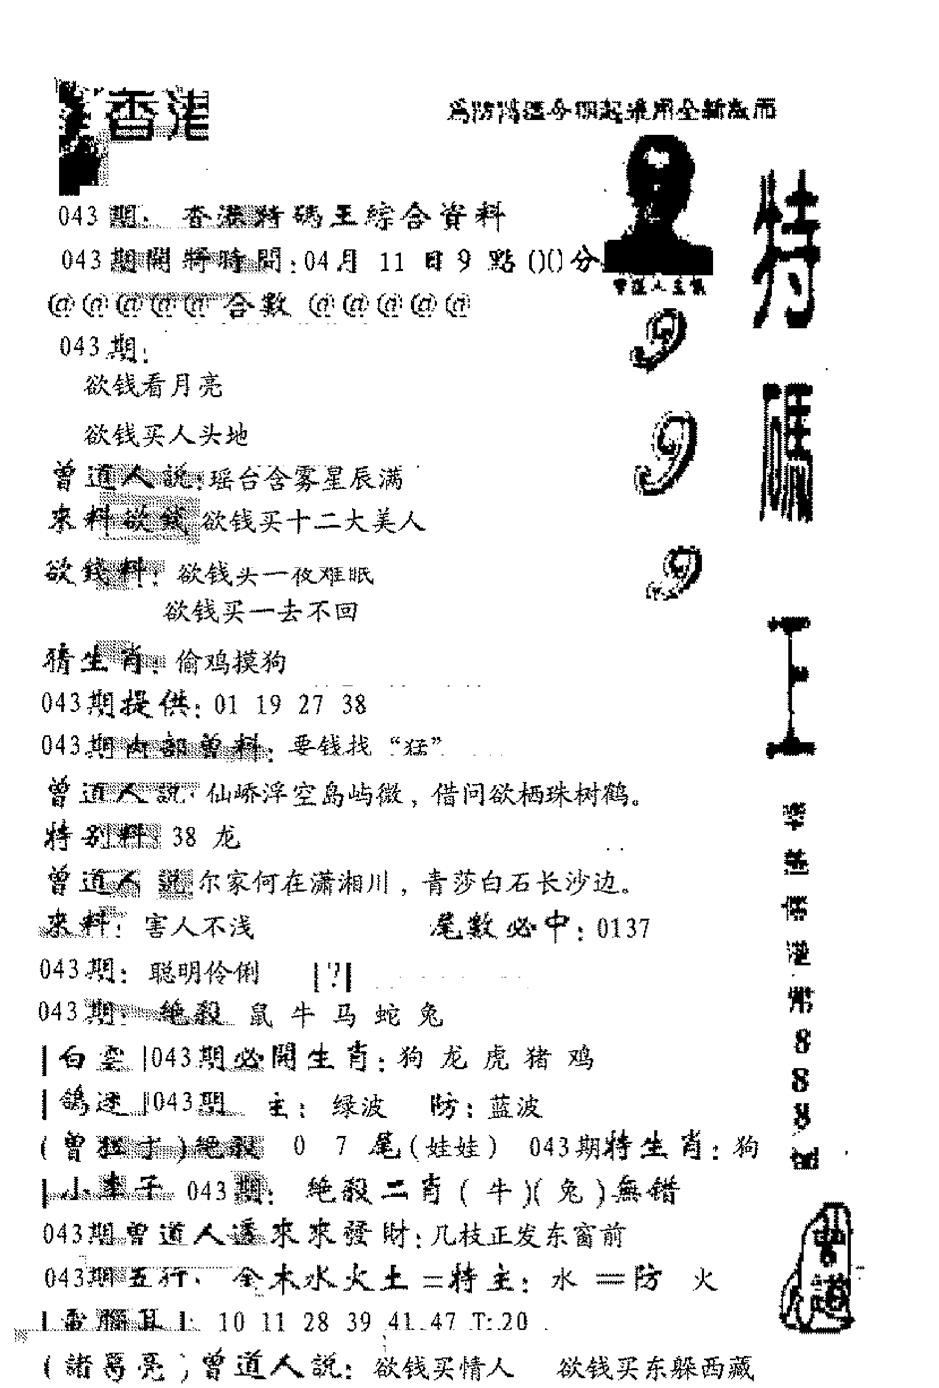 香港
為防偽區今期起采用全新版面
043期: 香港特碼王綜合資料
043期開將時間:04月 11 日 9 點()()分
@@@@@合數@@@@@
曾道人主俬
043期:
欲钱看月亮
欲钱买人头地
曾道人說:瑶台含雾星辰满
來料欲錢 欲钱买十二大美人
欲錢料: 欲钱头一夜难眠
欲钱买一去不回
猜生肖: 偷鸡摸狗
043期提供: 01 19 27 38
043期内部曾料: 要钱找 “猛”
曾道人說: 仙峤浮空岛屿微, 借问欲栖珠树鹤。
特别料: 38 龙
曾道人 説: 尔家何在潇湘川, 青莎白石长沙边。
來料: 害人不浅 尾數必中: 0137
043期: 聪明伶俐 |?|
043期: 絶殺 鼠 牛 马 蛇 兔
|白雲|043期必開生肖: 狗 龙 虎 猪 鸡
|鴿迷|043期 主: 绿波 防: 蓝波
(曾 )絶殺 0 7 尾(娃娃) 043期特生肖: 狗
|小李子 043期: 绝殺二肖(牛)(兔)無错
043期曾道人透來來發財: 几枝正发东窗前
043期五行: 金木水火土=特主: 水 =防 火
|電腦耳|: 10 11 28 39 41.47 T:20
(諸葛亮)曾道人說: 欲钱买情人 欲钱买东躲西藏
特碼王
9
9
9
港幣888
曾道